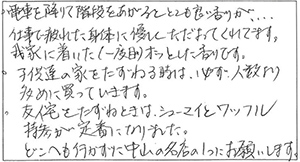 電車を降りて階段をあがるととても良い香りが、...
仕事で疲れた身体に優しくただよってくれてます。
我家に着いた(一度前)ホッとした香りです。
子供達の家をたずねる時は、必ず、人数より
多めに買っていきます。
友人宅をたずねるときは、シューマイとワッフル
持参が定番になりました。
どこへも行かずに中山の名店の1つにお願いします